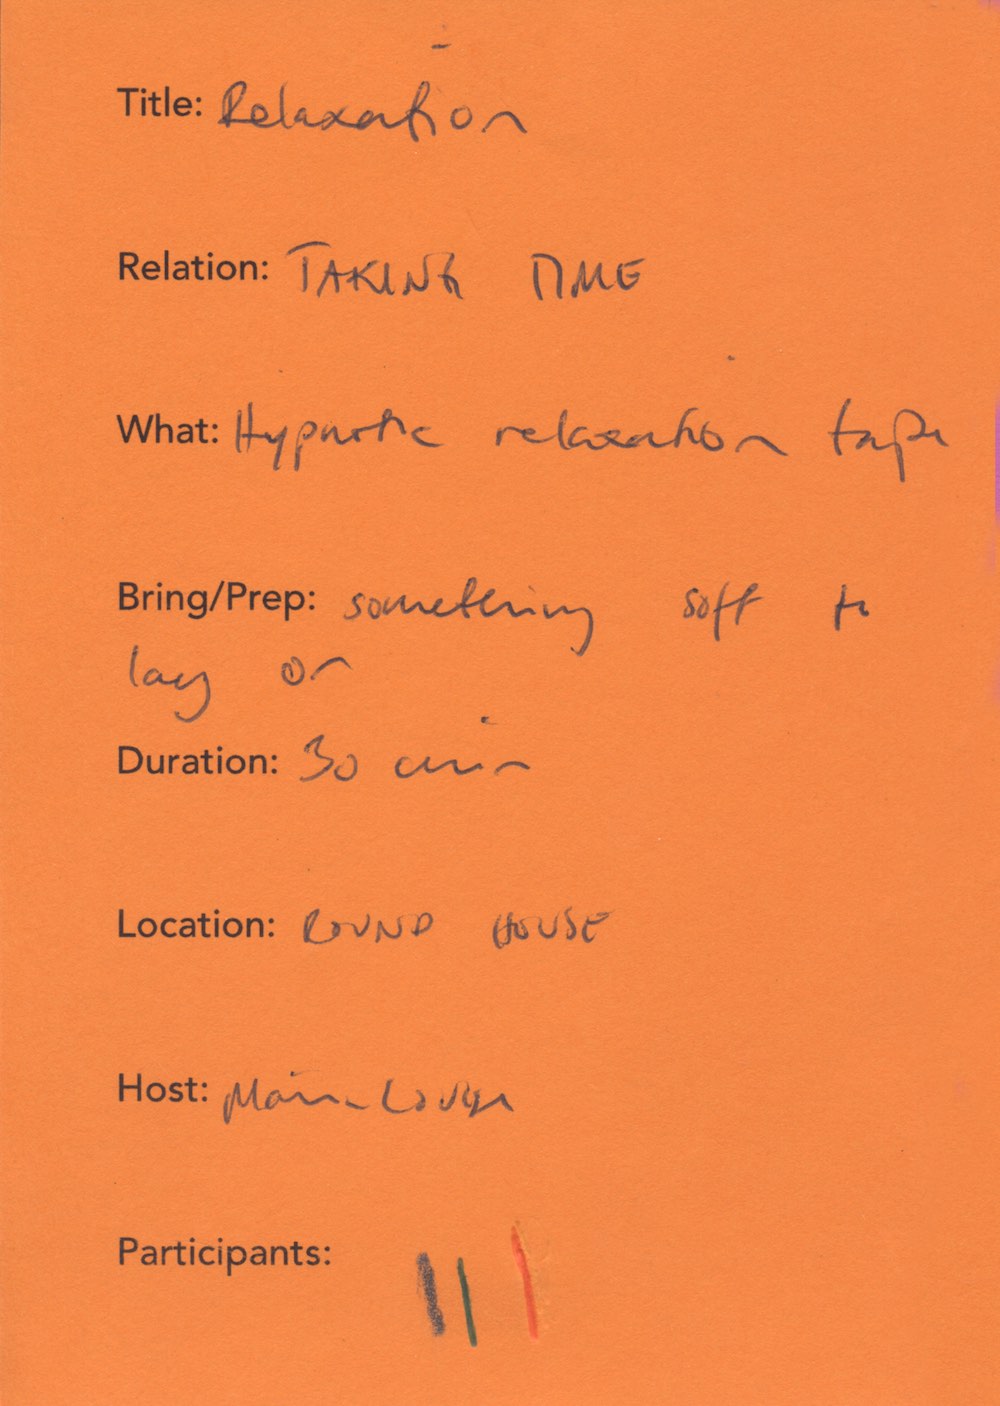 Title: Relaxation
Relation: TAKING TIME
What: Hypnotic relaxation tape
Bring/Prep: something soft to
lay on
Duration: 30 min
Location: ROUND HOUSE
Host:
Participants: